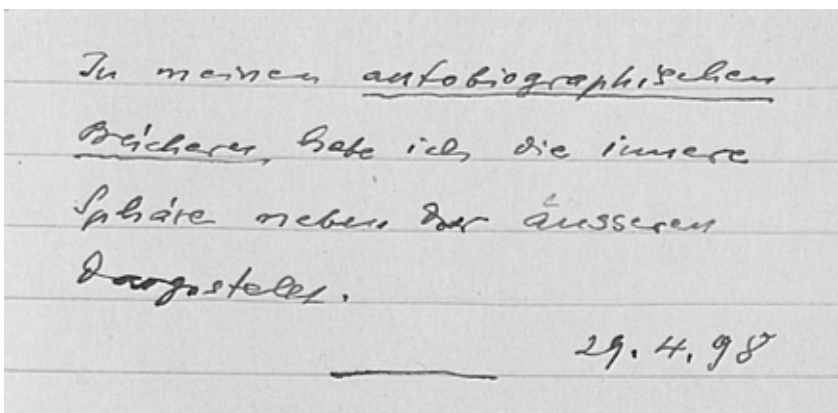 In meinen autobiographischen
Büchern, habe ich die innere
Sphäre neben der äusseren
dargestellt.
29.4.98